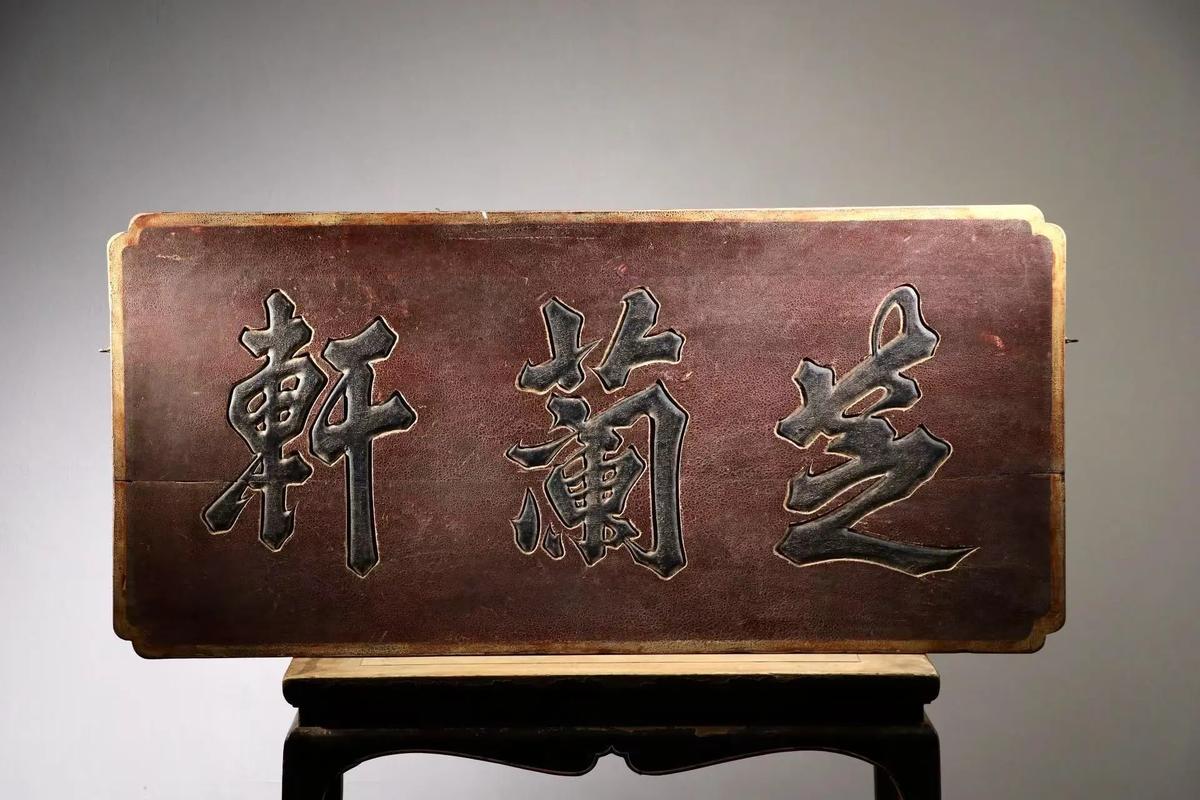 芝蘭軒